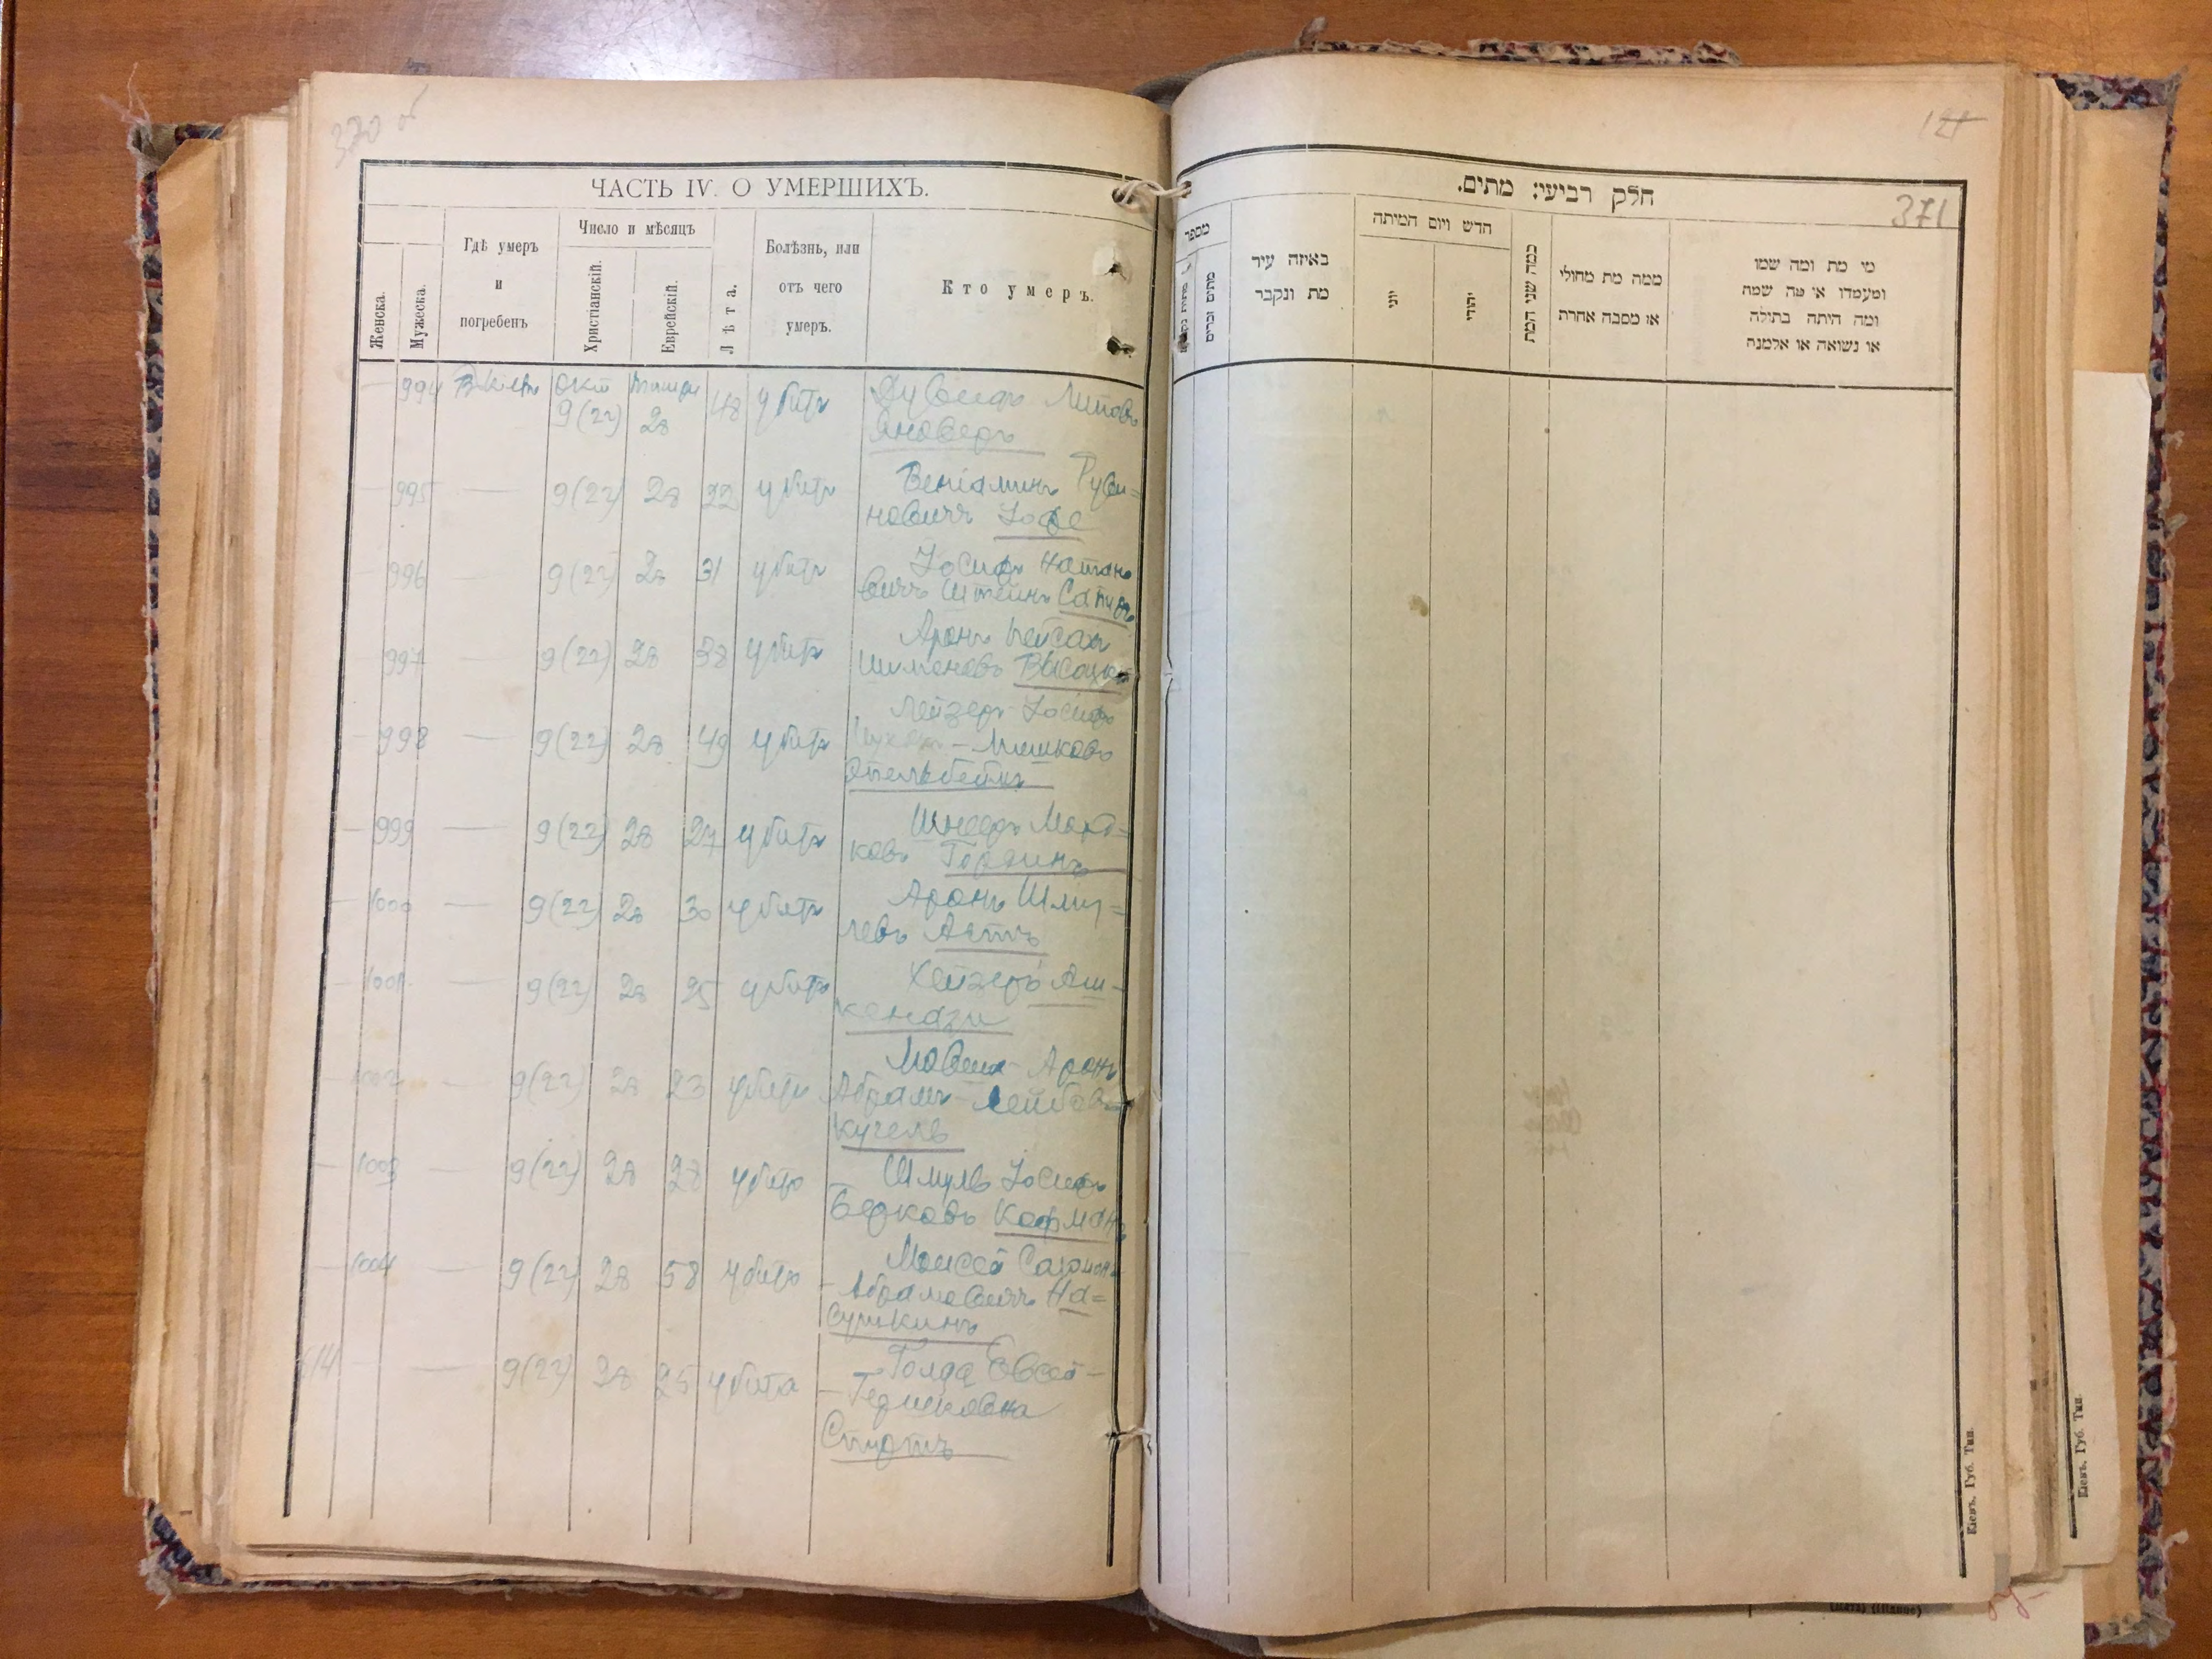 370 об
ЧАСТЬ IV. О УМЕРШИХЪ.
Женска.
Мужеска.
Гдѣ умеръ
и
погребенъ
Число и мѣсяцъ
Христіанскій.
Еврейскій.
Лѣта.
Болѣзнь, или
отъ чего
умеръ.
Кто умеръ.
— 994 В Кіевѣ Окт Тишри 48 убитъ
9(22) 28
Яноверъ
— 995 — 9(22) 28 22 убитъ Веніаминъ Руви=
новичъ Іоффе
— 996 — 9(22) 28 31 убитъ Іосифъ Натано
вичъ Штейнъ
— 997 — 9(22) 28 38 убитъ Аронъ Пейсахъ
Шимоновъ Высоцкій
— 998 — 9(22) 28 49 убитъ Лейзеръ-Іосифъ
— Мошковъ
— 999 — 9(22) 28 27 убитъ ШнееръМорд=
ковъ Гординъ
— 1000 — 9(22) 28 30 убитъ Аронъ Шму=
левъ
— 1001 — 9(22) 28 25 убитъ Лейзеръ Аш-
кенази
— 1002 — 9(22) 28 23 убитъ Мовша-Аронъ
Абрамъ-Лейбовъ
Кугель
— 1003 — 9(22) 28 28 убитъ Шмуль Іосифъ
Берковъ Кофманъ
— 1004 — 9(22) 28 58 убитъ Моисей Саломонъ
— Абрамовичъ На=
сушкинъ
614 — — 9(22) 28 25 убита — Голда Евсей-
— Гершковна
121
371
חלק רביעי: מתים.
מספר
מתים זכרים
באיזה עיר
מת ונקבר
חדש ויום המיתה
יוני
יהודי
כמה שני המת
ממה מת מחולי
או מסבה אחרת
מי מת ומה שמו
ומעמדו או מה שמה
ומה היתה בתולה
או נשואה או אלמנה
Кіевъ. Губ. Тип.
Кіевъ. Губ. Тип.